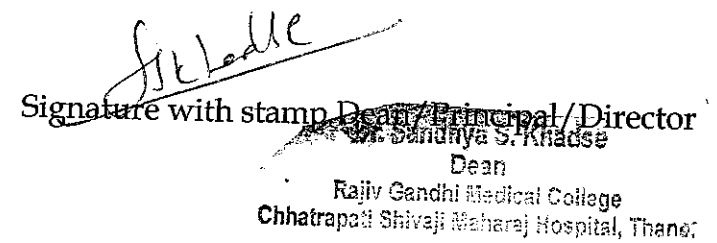 SKhadse
Signature with stamp Dean/Principal/Director
Dr. Sandhya S. Khadse
Dean
Rajiv Gandhi Medical College
Chhatrapati Shivaji Maharaj Hospital, Thane.